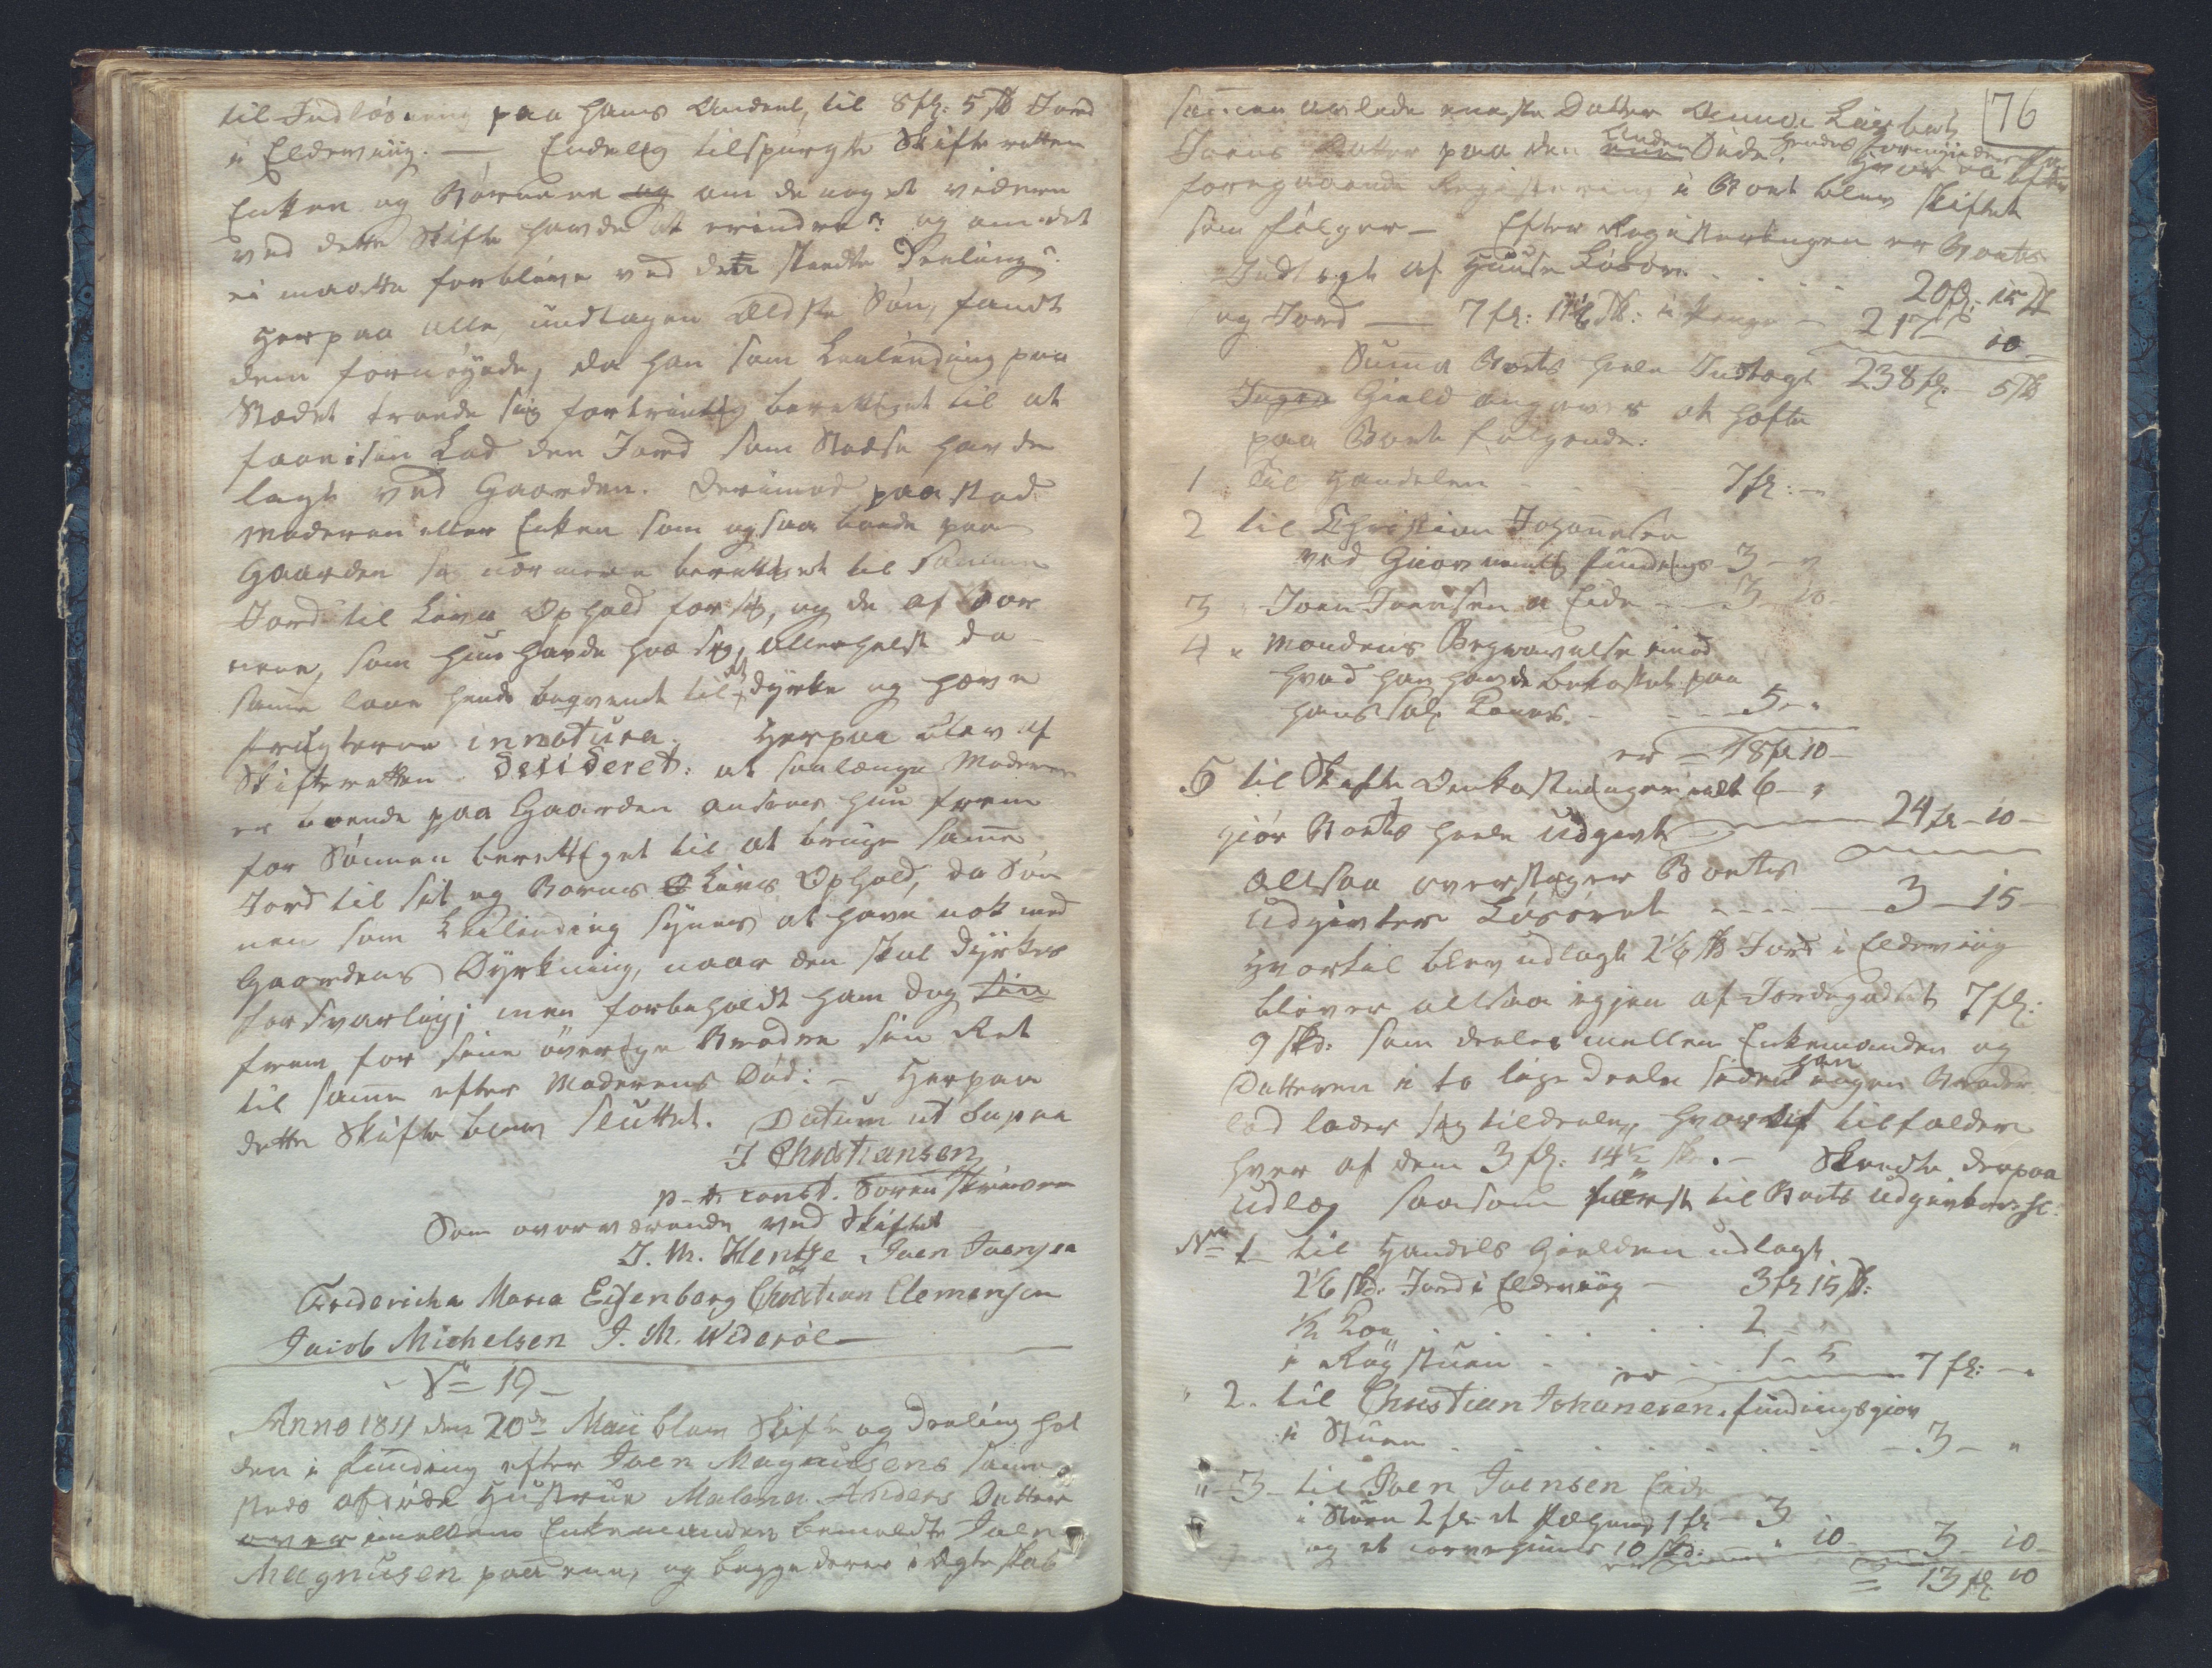 til Indløsning paa hans Andeel, til 8 fl: 5 sk Jord
i Eldeviig. — Endelig tilspurgte Skifteretten
Enken og Børnene og om de noget videre
ved dette Skifte havde at erindre? og om det
ei maatte forblive ved dette skeedte Deeling?
Herpaa alle, undtagen Ældste Søn, fandt
dem fornøyede, da han som Leilænding paa
Stædet troede sig fortrinlig berettiget til at
faae i sin Lod den Jord som Stedse havde
lagt ved Gaarden. Derimod paastod
Moderen eller Enken som ogsaa boede paa
Gaarden sig nærmere berettiget til samme
Jord til Livs Ophold for sig, og de af Bør
nene, som hun havde hos sig, allerhelst da
samme laae hende beqvemt til at dyrke og hæve
frugterne in natura. Herpaa blev af
Skifteretten Desideret: at saalænge Moderen
er boende paa Gaarden ansees hun frem
for Sønnen berettiget til at bruge samme
Jord til sit og Børns Livs Ophold, da Søn
nen som Leilænding synes at have nok med
Gaardens Dyrkning, naar den skal dyrkes
forsvarlig; men forbeholdt ham dog sin
frem for sine øvrige Brødre sin Ret
til samme efter Moderens Død: — Herpaa
dette Skifte blev sluttet. Datum ut Supra
J Christiansen
p-t const. Sorenskriver
Som overværende ved Skiftet
J. M. Hentze Joen Joensen
Fridericha Maria Eisenborg Christian Clemensen
Jacob Michelsen J. M. Widerøe
No 19
Anno 1811 den 20de Maii blev Skifte og Deeling hol
den i Funding efter Joen Magnusens samme
steds afdøde Hustrue Malena Anders Datter
over imellem Enkemanden bemeldte Joen
Magnusen paa ene, og begge deres i Ægteskab
76
sammen avlede eneste Datter Anna Lisbeth
Joens Datter paa den ene anden Side. Hendes Formynder
Hvorda efter
foregaaende Registering i Boet blev skiftet
som følger — Efter Registeringen er Boets
Indtægt af Huuse Løsøre . . . 20 fl: 15 sk
og Jord — 7 fl: 11 1/6 sk: i Penge — 217 — 10
Suma Boets heele Indtægt 238 fl. 5 sk
Ingen Gield angaves at hæfte
paa Boet følgende:
1 Til Handelen — 7 fl: —
2 til Christian Johannesen
ved Giov Fundings 3 — "
3 " Joen Joensen a Eide — 3 — 10 —
4 " Mandens Begravelse imod
hvad han havde bekostet paa
hans sal. Kones. — 5 — "
er — 18 fl 10 —
5 til Skifte Omkostninger 6 — "
giør Boets heele Udgivt — 24 fl — 10 —
Altsaa overstiger Boets
Udgivter Løsøret — — — 3 — 15 —
Hvortil blev udlagt 2 1/6 sk Jord i Eldeviig
bliver altsaa igjen af Jordegodset 7 fl:
9 skd: som deeles mellem Enkemanden og
Datteren i to lige Deele siden han ingen Broder
lod lader sig tildeele, hvoraf tilfalder
hver af dem 3 fl: 14 1/2 sk. — Skeedte derpaa
Udlæg saasom først til Boets Udgivter
No 1 til Handels Gielden udlagt
2 1/6 skd: Jord i Eldeviig — 3 fl 15 sk:
1/2 Koe . . . . . 2 "
i Røgstuen . . er . . 1 — 5 7 fl: — "
" 2. til Christian Johanesen. fundingsgiov
i Stuen . . . . . . . — 3 — "
" 3 — til Joen Joensen Eide
i Stuen 2 fl: et 1 fl — 3
og et 10 skd: " 10 — 3 — 10 —
13 fl 10